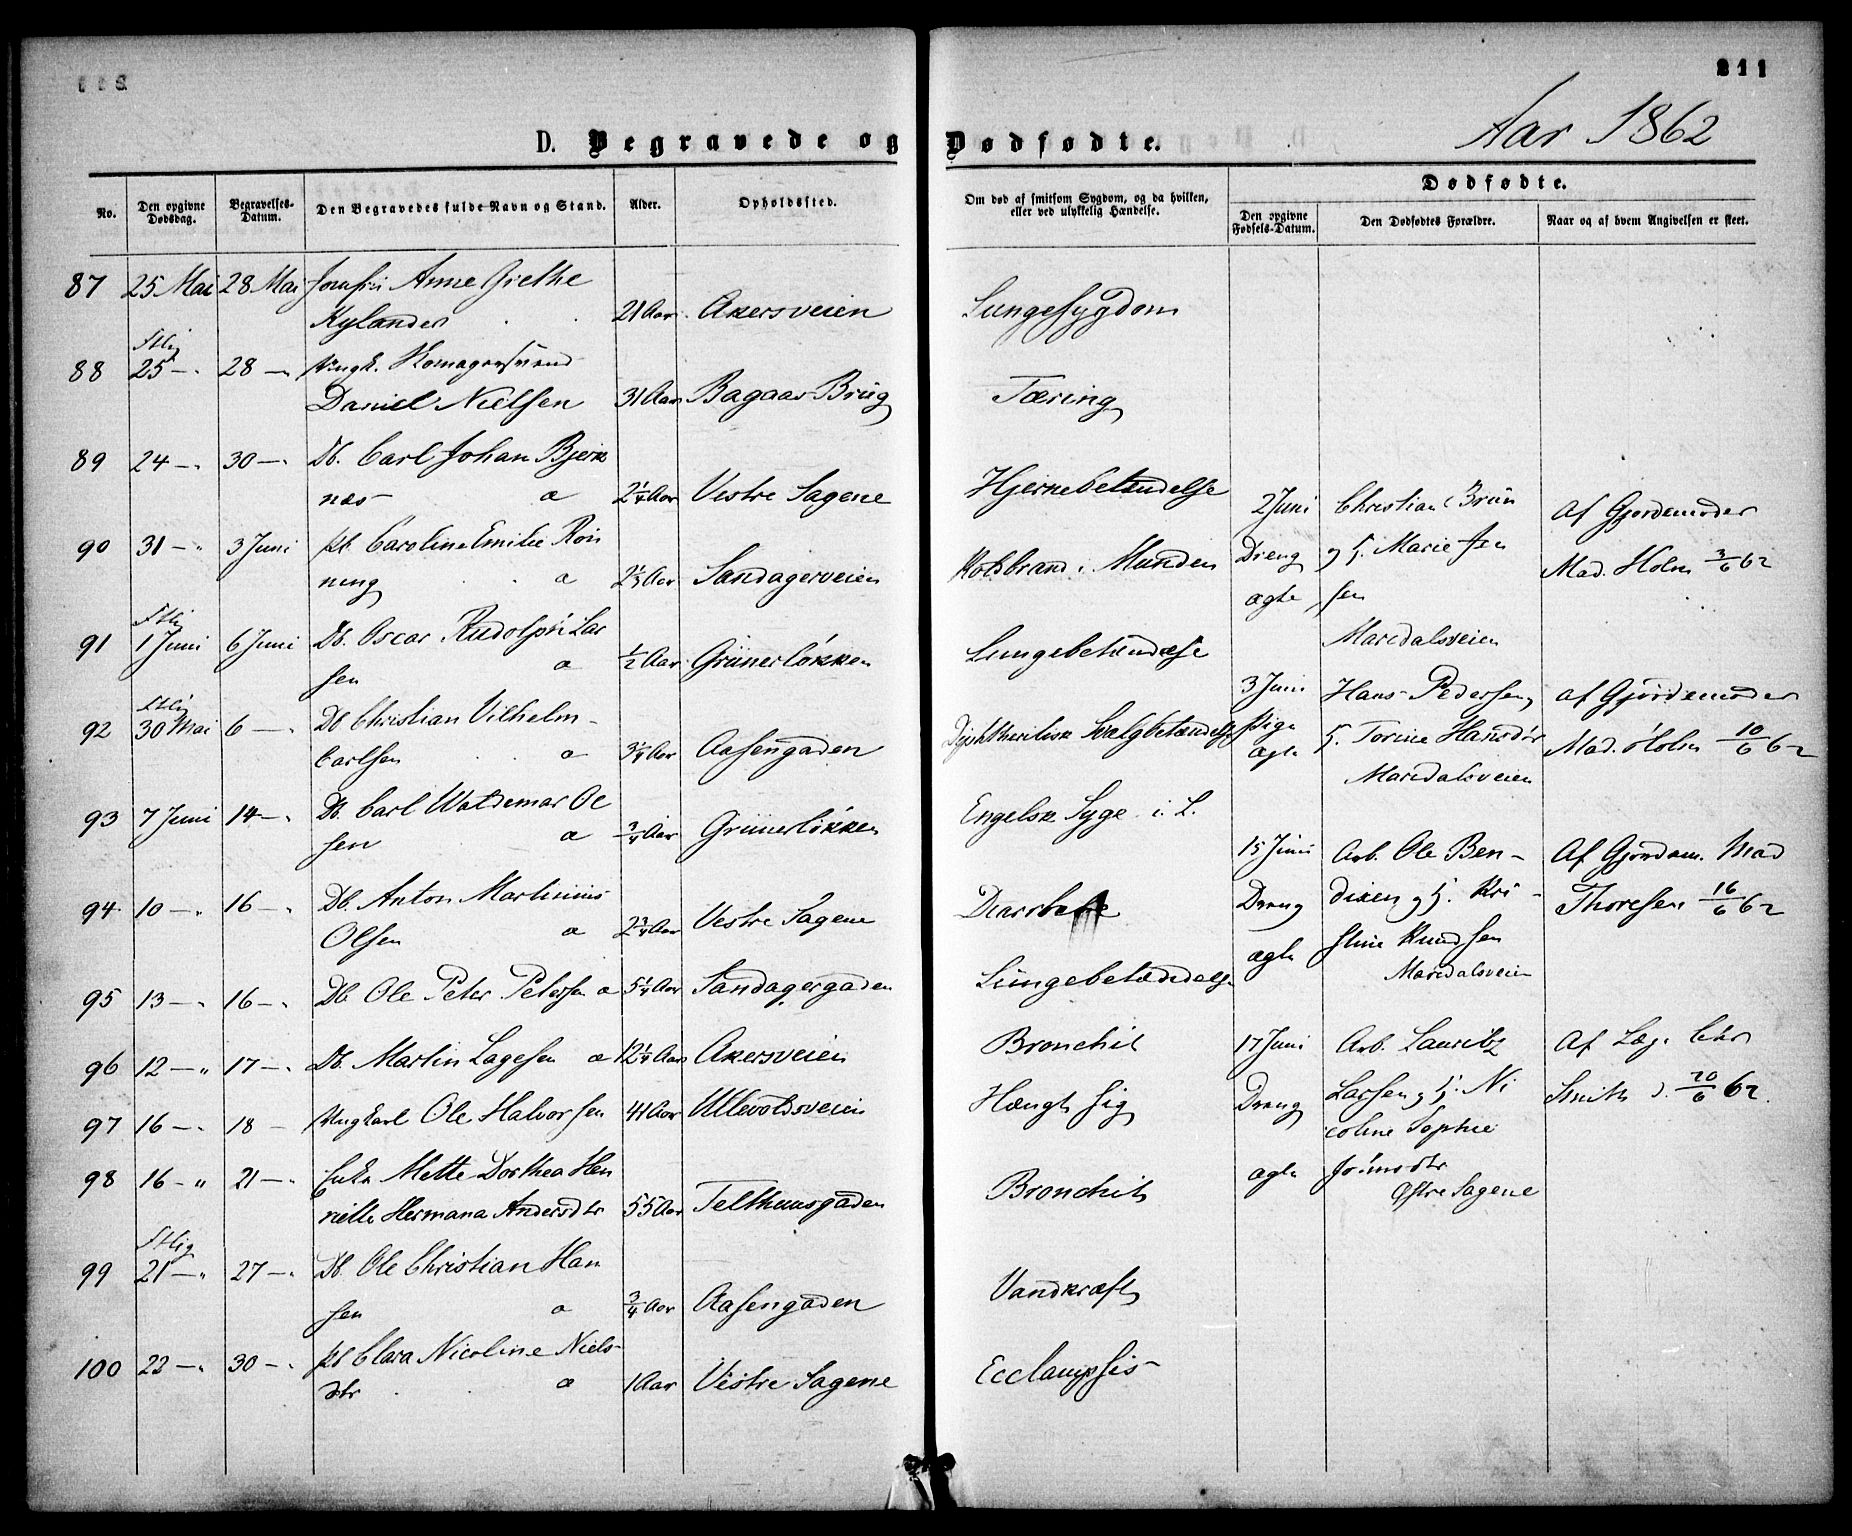 211
Aar 1862
D. Begravede og Dødfødte.
No.
Den opgivne Dødsdag.
Begravelses-Datum.
Den Begravedes fulde Navn og Stand.
Alder.
Opholdssted.
Om død af smitsom Sygdom, og da hvilken, eller ved ulykkelig Hændelse.
Dødfødte.
Den opgivne Fødsels-Datum.
Den Dødfødtes Forældre.
Naar og af hvem Angivelsen er skeet.
87 25 Mai 28 Mai Jomfru Anne Grethe
Kylander 21 Aar Akersveien Lungesygdom
88 25 — 28 — Ungk. Komagersvend
Daniel Nielsen 31 Aar Bagaas Brug Tæring
89 24 — 30 — Db. Carl Johan Bjerk
næs a 2¼ Aar Vestre Sagene Hjernebetændelse
90 31 — 3 Juni pb. Caroline Emilie Røn
ning a 2⅓ Aar Sandagerveien Koldbrand i Munden
91 1 Juni 6 Juni Db. Oscar Rudolph Lar
sen a ½ Aar Grünerløkken Lungebetændelse
92 30 Mai 6 — Db Christian Vilhelm
Carlsen a 3¼ Aar Aasengaden Diphtheritisk Svalgbetændelse
93 7 Juni 14 — Db. Carl Waldemar Ol
sen a ¾ Aar Grünerløkken Engelsk Syge i L.
94 10 — 16 — Db. Anton Martinius
Olsen a 2¾ Aar Vestre Sagene Diarrhee
95 13 — 16 — Db Ole Peter Petersen a 5¼ Aar Sandagergaden Lungebetændelse
96 12 — 17 — Db. Martin Lagesen a 12¼ Aar Akersveien Bronchit
97 16 — 18 — Ungkarl Ole Halvorsen 41 Aar Ullevoldsveien Hængt sig
98 16 — 21 — Enke Mette Dorthea Hen
riette Hermana Andersdtr 55 Aar Telthuusgaden Bronchit
99 21 — 27 — Db. Ole Christian Han
sen a ¾ Aar Aasengaden Vandkræft
100 22 — 30 — pb Clara Nicoline Niels
dtr a 1 Aar Vestre Sagene Ecclampsis
2 Juni Christian Brun Af Gjordemoder
Dreng og H. Marie Jen Mad. Holm 3/6 62
ægte sen
Maridalsveien
3 Juni Hans Pedersen, af Gjordemoder
Pige H. Torine Hansdtr Mad. Holm 10/6 62
ægte Maridalsveien
15 Juni Arb. Ole Ben- Af Gjordem. Mad
Dreng dixen og H. Kri- Thoresen 16/6 62
ægte stine Knudsen
Maridalsveien
17 Juni Arb. Lauritz Af Læge Chr
Dreng Larsen og H. Ni Smith d. 20/6 62.
coline Sophie
ægte
Østre Sagene